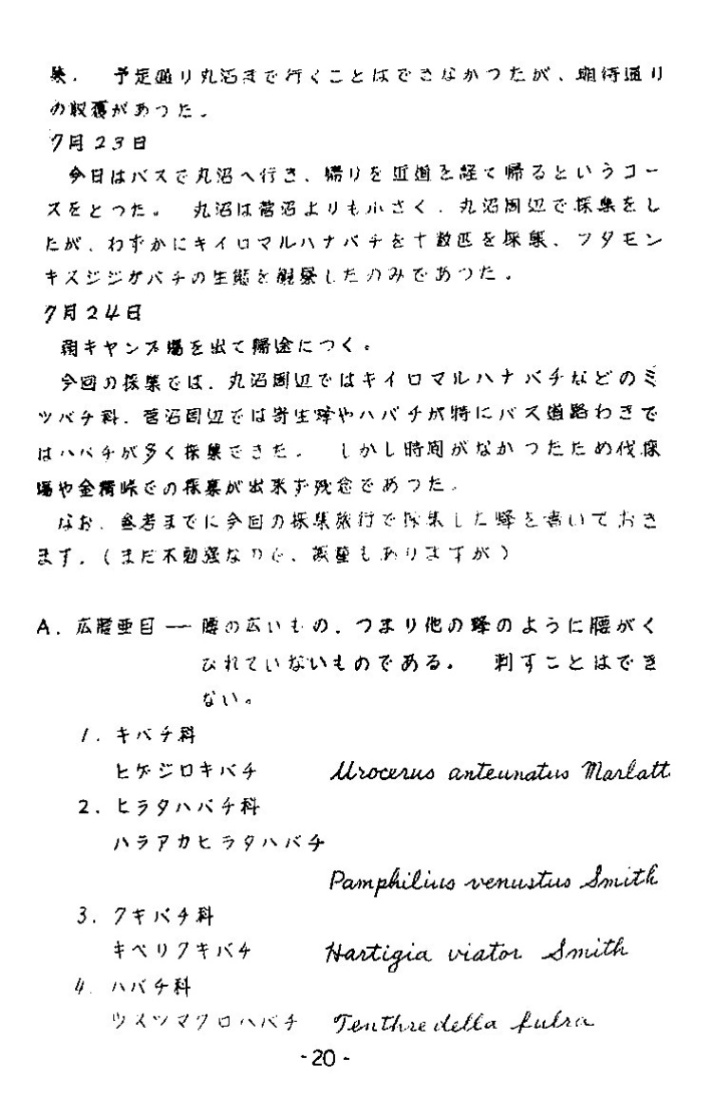 集。 予定通り丸沼まで行くことはできなかつたが、期待通り
の収穫があつた。
7月23日
今日はバスで丸沼へ行き、帰りを近道を経て帰るというコー
スをとつた。 丸沼は菅沼よりも小さく、丸沼周辺で採集をし
たが、わずかにキイロマルハナバチを十数匹を採集、フタモン
キスジジガバチの生態を観察したのみであつた。
7月24日
朝キヤンプ場を出て帰途につく。
今回の採集では、丸沼周辺ではキイロマルハナバチなどのミ
ツバチ科、菅沼周辺では寄生蜂やハバチが特にバス道路わきで
はハバチが多く採集できた。 しかし時間がなかつたため伐採
場や金精峠での採集が出来ず残念であつた。
なお、参考までに今回の採集旅行で採集した蜂を書いておき
ます。(まだ不勉強なので、もありますが)
A. 広腰亜目 ― 腰の広いもの、つまり他の蜂のように腰がく
びれていないものである。 刺すことはでき
ない。
1. キバチ科
ヒゲジロキバチ Urocerus anteunatus Marlatt
2. ヒラタハバチ科
ハラアカヒラタハバチ
Pamphilius venustus Smith
3. クキバチ科
キベリクキバチ Hartigia viator Smith
4. ハバチ科
ツスツマクロハバチ Tenthredella fulva
-20-